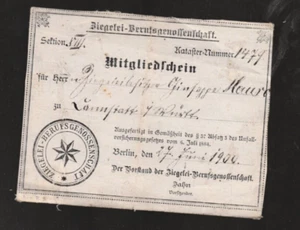 Ziegelei-Berufsgenossenschaft.
Sektion VII. Kataster-Nummer 1477
Mitgliedschein
für Herrn Ziegeleibesitzer Giuseppe Mauro
zu Cannstatt
Ausgefertigt in Gemäßheit des § 37 Absatz 5 des Unfall-
versicherungsgesetzes vom 6. Juli 1884.
Berlin, den Juni 19
Der Vorstand der Ziegelei-Berufsgenossenschaft.
Vorsitzender.
ZIEGELEI-BERUFSGENOSSENSCHAFT